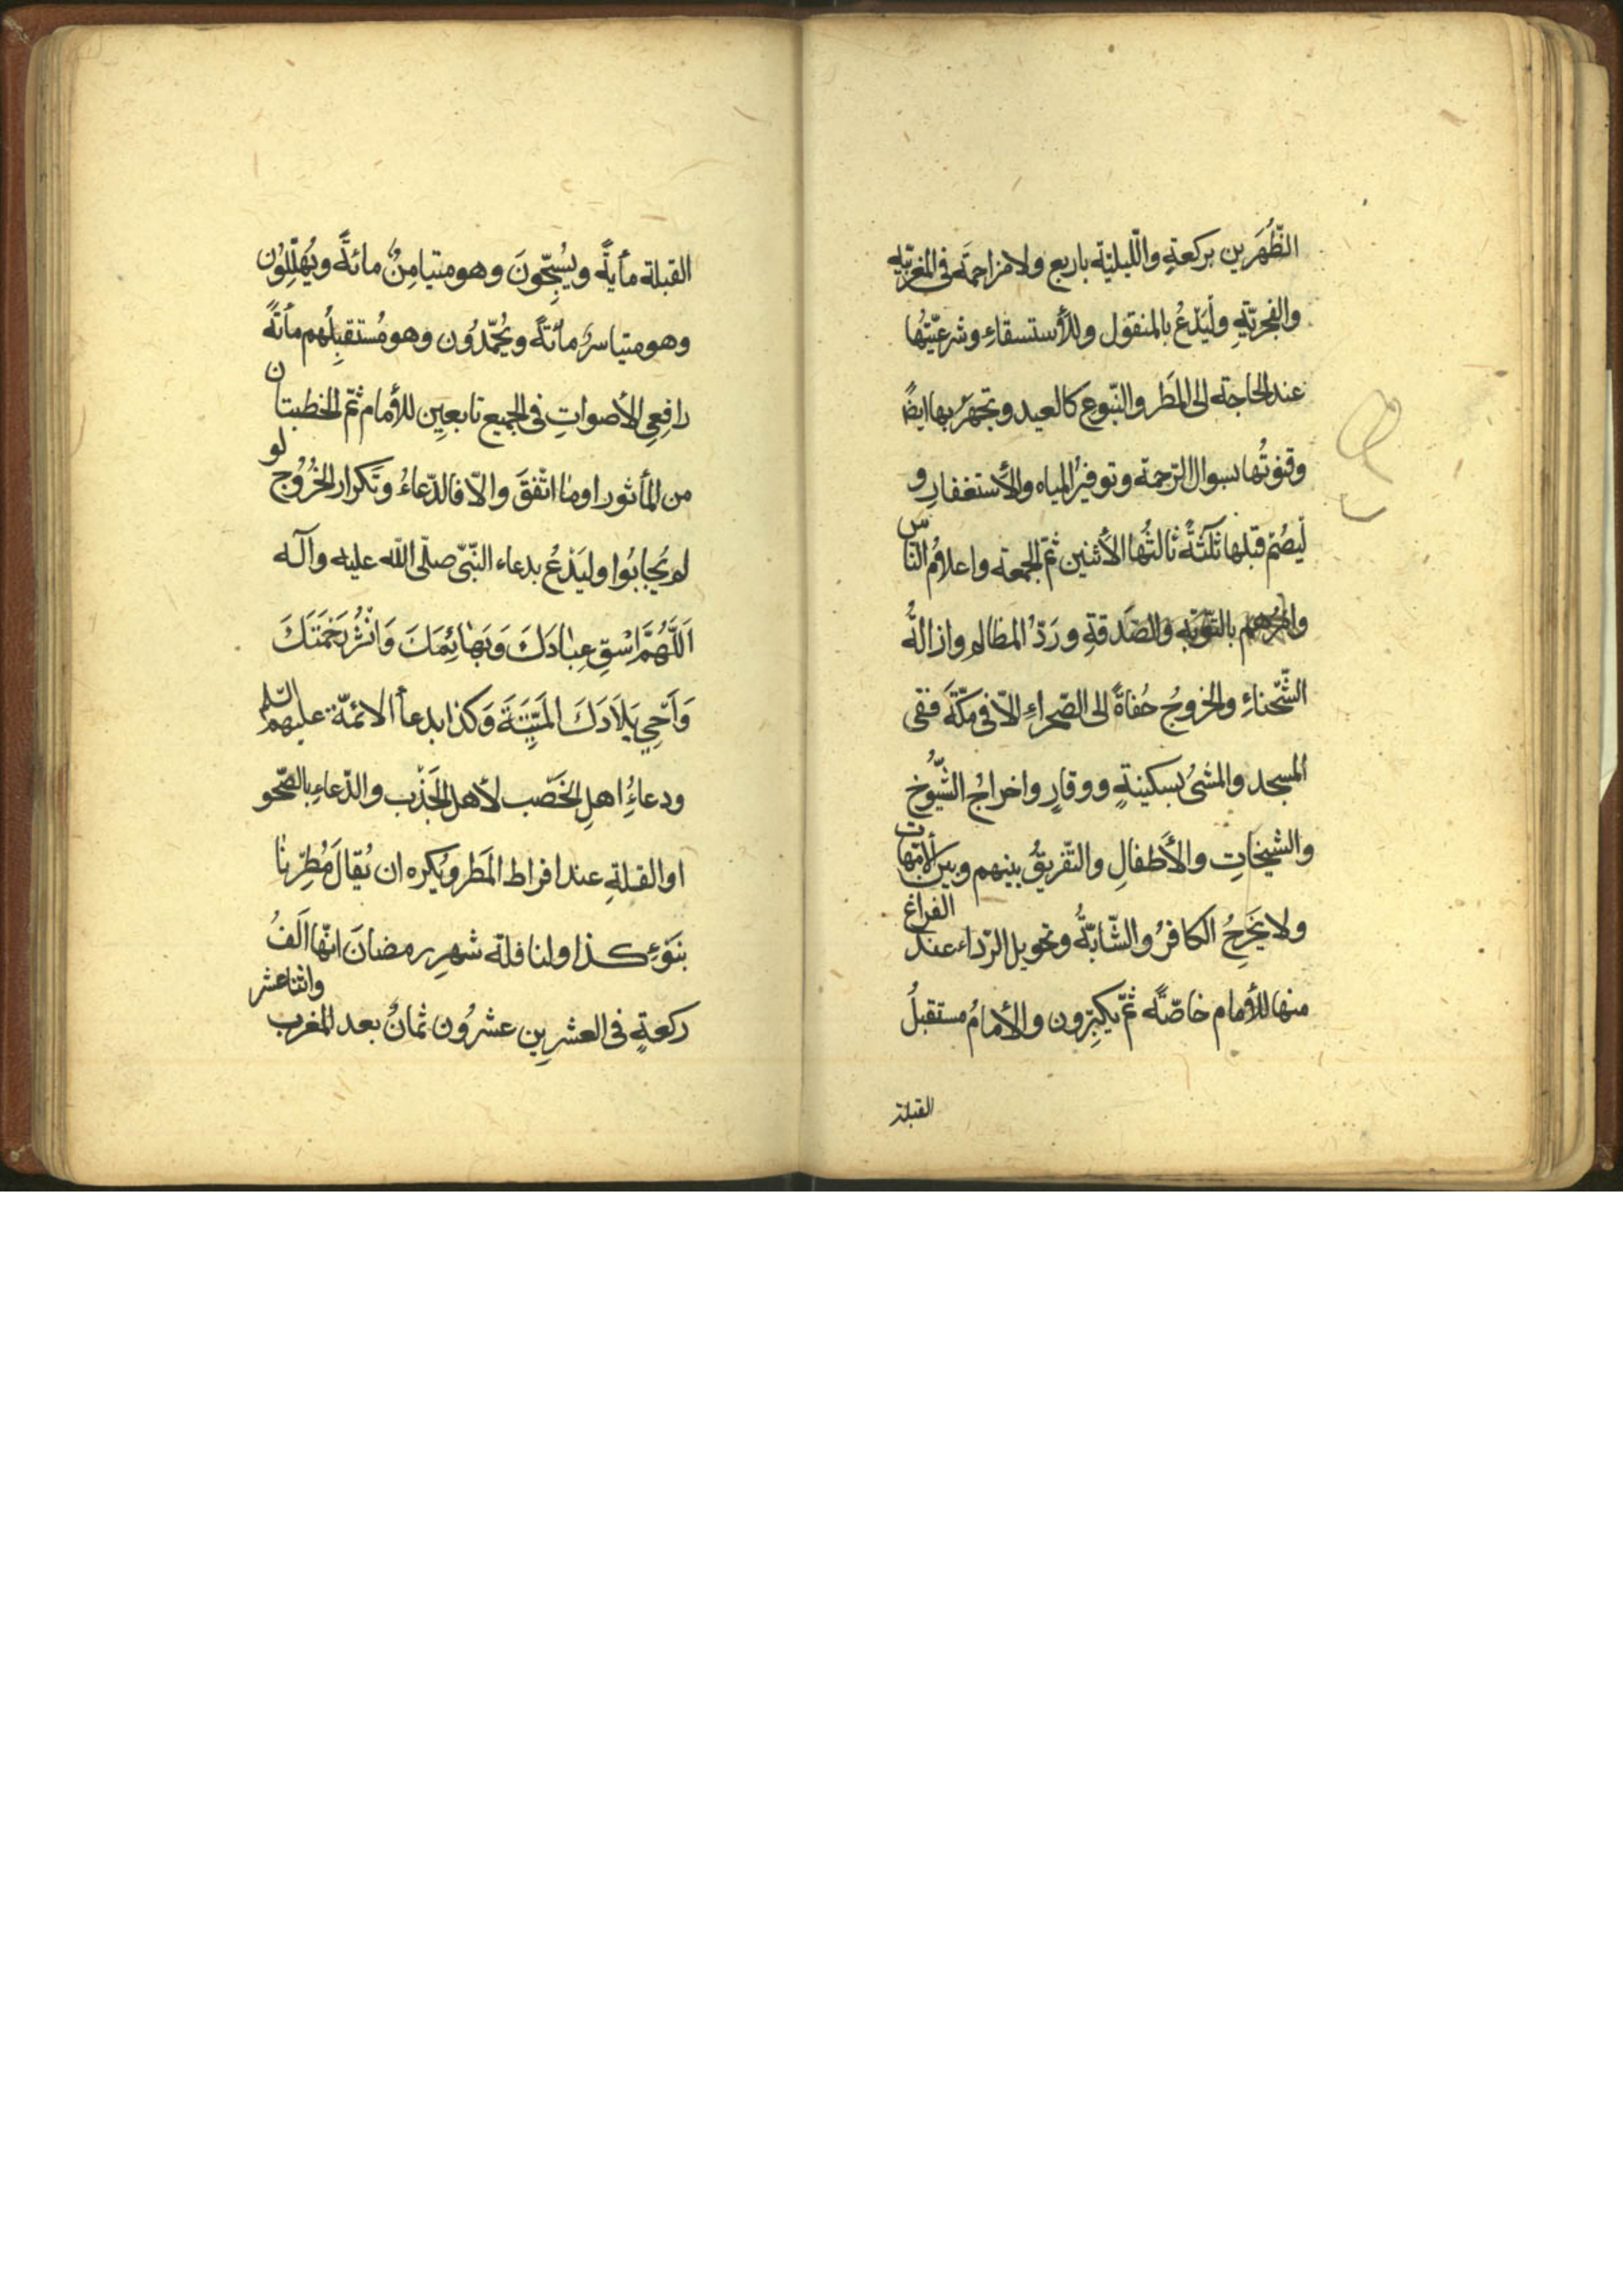 الظُّهرَين بركعةٍ واللّيليّة باربع ولا مزاحمَة فى المغربيّة
والفجريّةِ وليَدْعُ بالمنقول وللأستسقاءِ وشرعيّتُها
عند الحاجة الى المَطر والنّبوع كالعيد وتجهرُ بها ايضًا
وقنوتُها بسوال الرّحمة وتوفيرُ المياه والأستغفارِ و
ليَصُمْ قبلها ثلٰثةً ثالثُها الأثنين ثمّ الجمعة واعلامُ الناس
وامرُهم بالتّوبةِ والصّدقةِ وردّ المظالم وازالةُ
الشّحناءِ والخروجُ حُفاةً الى الصّحراءِ الّا فى مكّة ففى
المسجد والمشىُ بسكينةٍ ووقارٍ واخراجُ الشّيُوخ
والشيخاتِ والأطفالِ والتّفريقُ بينهم وبين الأمّهات
ولا يَخرجُ الكافرُ والشّابّةُ وتحويل الرّداء عند الفراغ
منها للأمام خاصّةً ثمّ يكبِّرون والأمامُ مستقبلُ
القبلة
القبلة مأيةً ويُسبّحُونَ وهو متيامِنٌ مائةً ويُهلّلُون
وهو متياسرٌ مأئةً ويُحمّدُون وهو مُستقبِلُهم مأئةً
رافِعِى الأصواتِ فى الجميع تابعِين للأمام ثمّ الخطبتان
من المأثور او ما اتّفقَ والّا فالدّعاءُ وتكرار الخُرُوج لو
لم يُجابُوا وليَدْعُ بدعاء النّبىّ صلّى اللّه عليه وآله
اَللّٰهُمَّ اسْقِ عِبٰادَكَ وَبَهٰائِمَكَ وَانْشُرْ رَحْمَتَكَ
وَاَحْىِ بِلَادَكَ المَيِّتَةَ وَكذا بدعاأ الائمّة عليهم السّلم
ودعاءُ اهلِ الخَصْب لأهل الجَدْب والدّعاءِ بالصّحو
او القلةِ عند افراط المَطر ويُكره ان يُقالَ مُطِرْنا
بنَوْءِ كذا ولنافلة شهرِ رمضانَ انّها الفُ واثنتا عشر
ركعةٍ فى العشرِين عشرُون ثمانٌ بعد المغرب